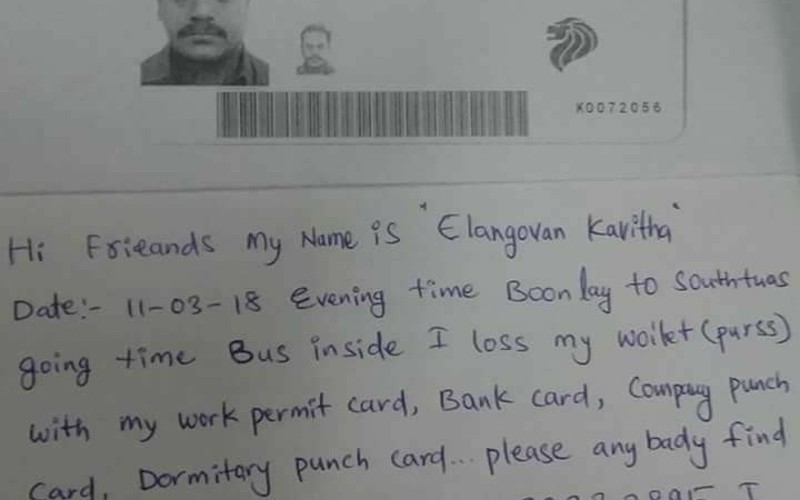 K0072056
Hi Frieands My Name is "Elangovan Kavitha"
Date:- 11-03-18 Evening time Boon lay to Southtuas
going time Bus inside I loss my wollet (purss)
with my work permit card, Bank card, Company punch
card, Dormitary punch card... please any bady find